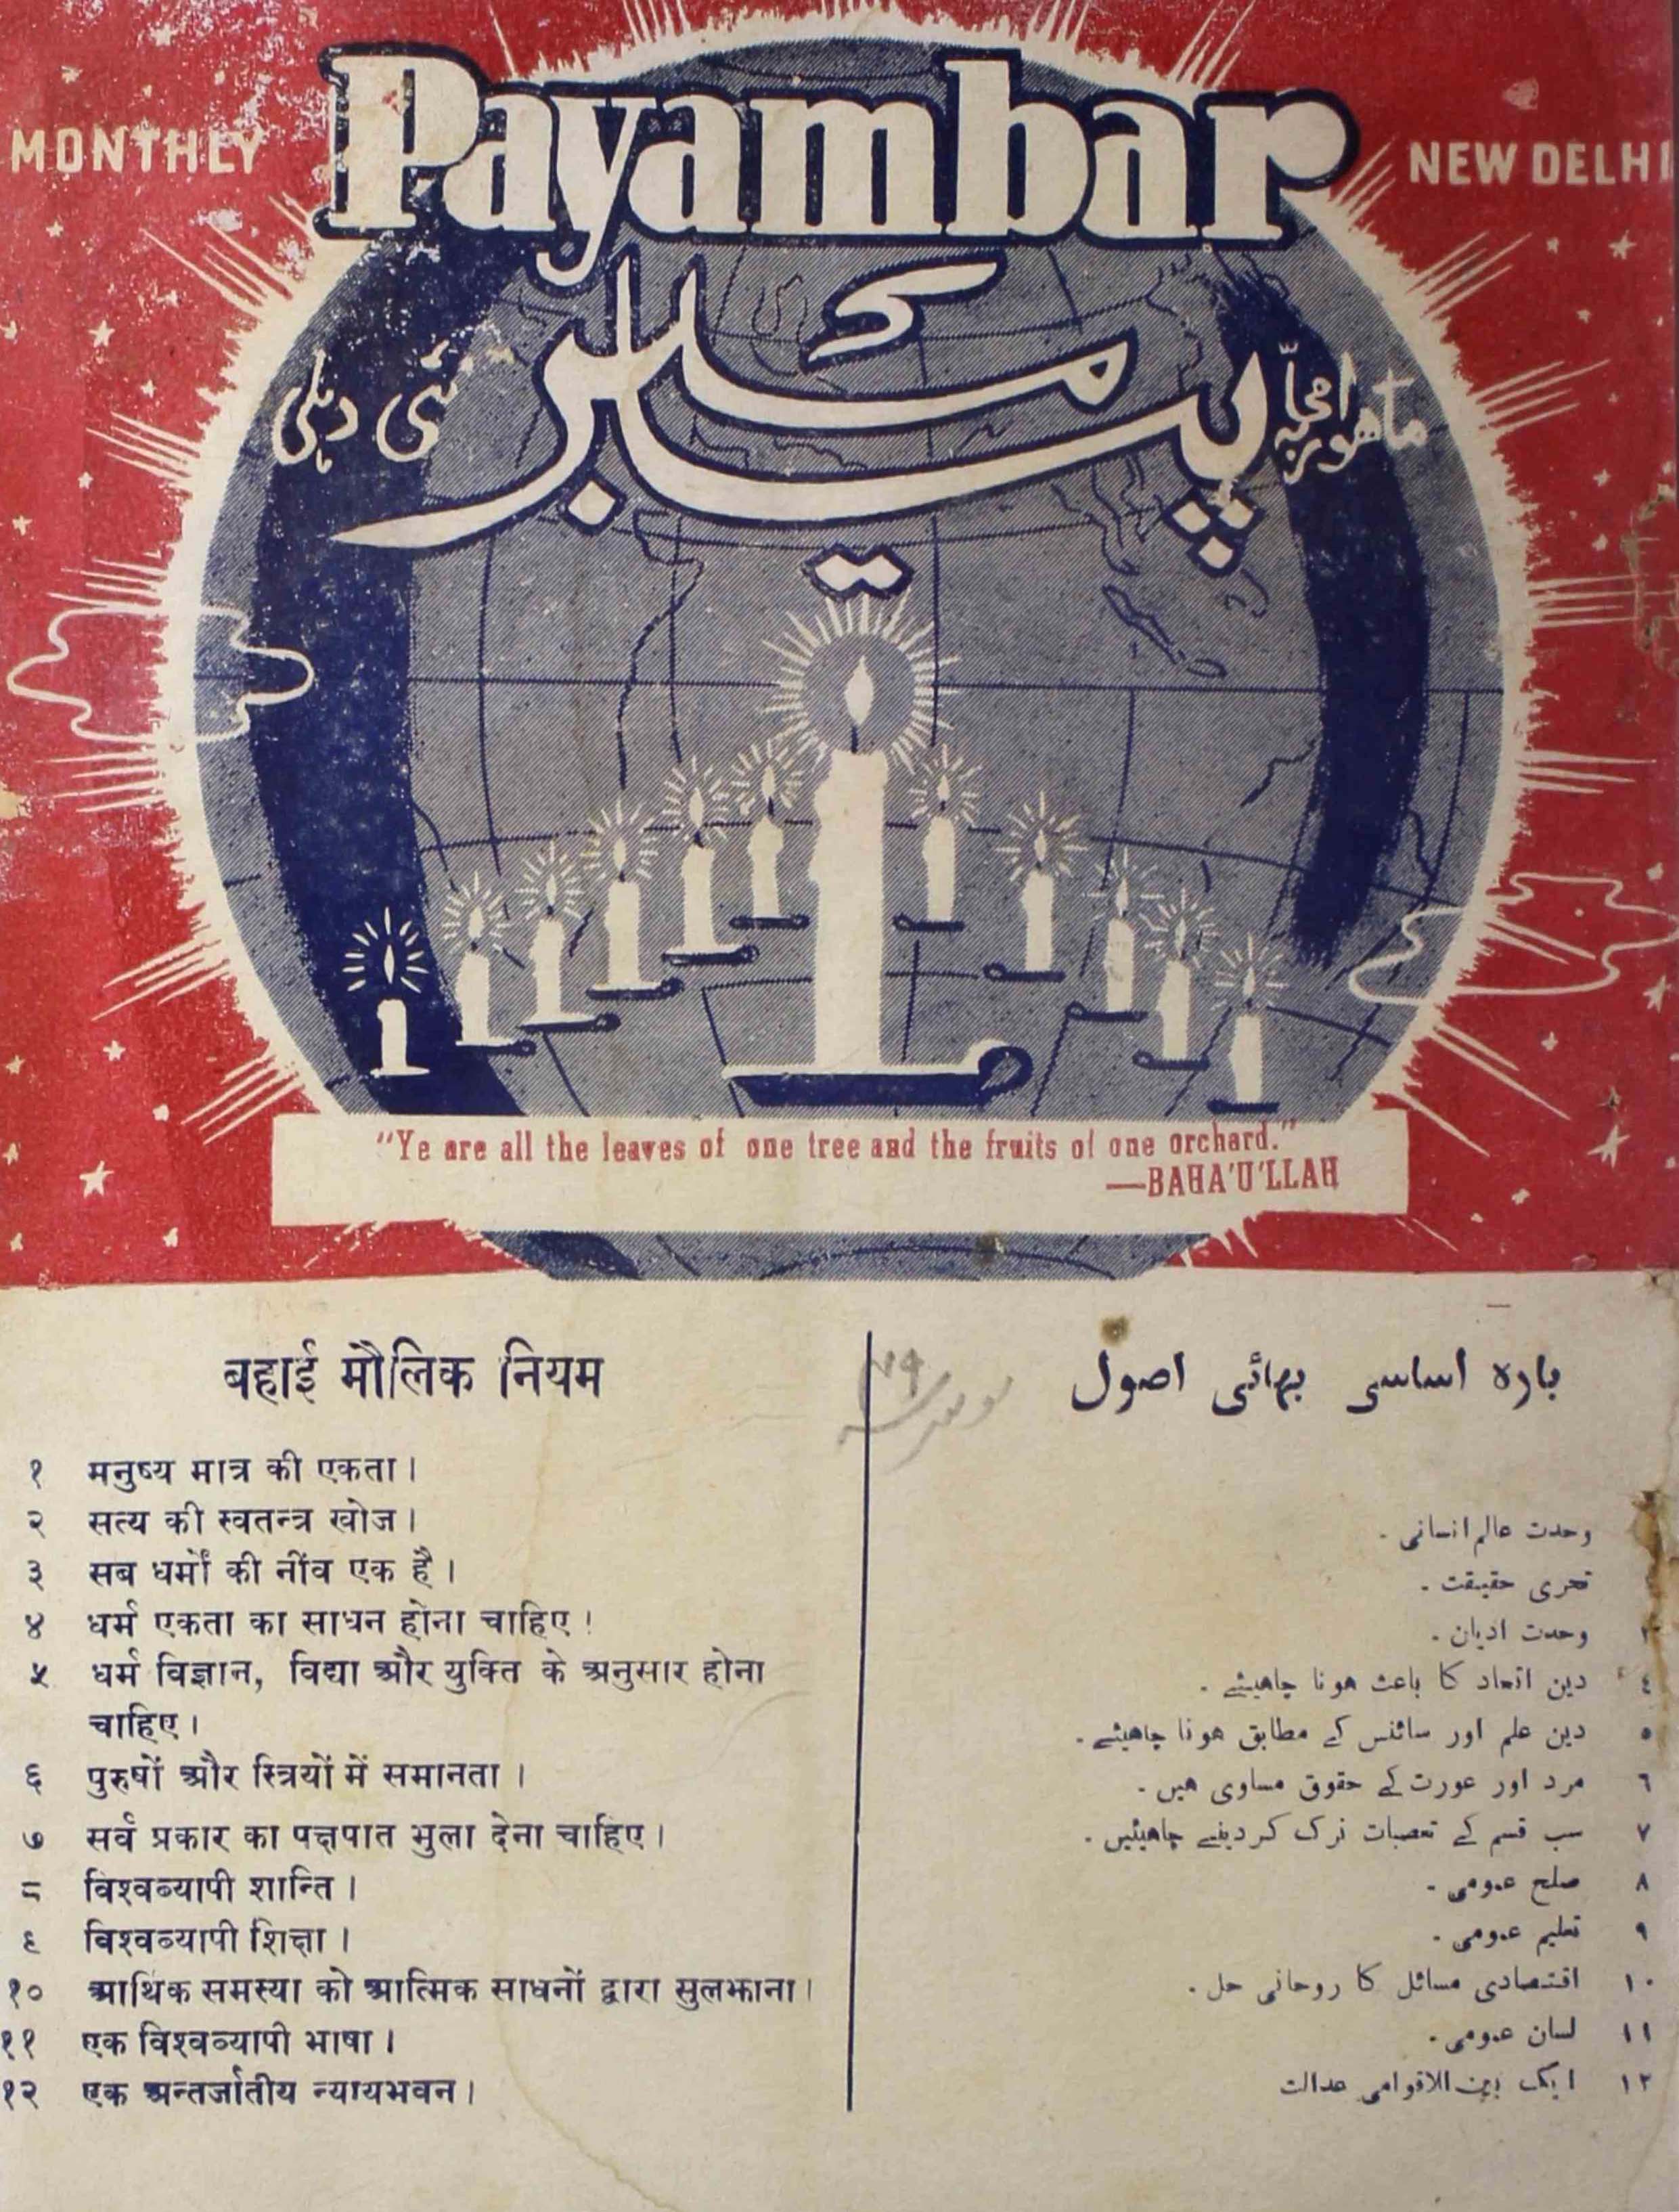 MONTHLY
Payambar
NEW DELHI
پیمبر
ماهوار مجلّہ
نئی دہلی
"Ye are all the leaves of one tree and the fruits of one orchard."
—BAHA'U'LLAH
बहाई मौलिक नियम
१ मनुष्य मात्र की एकता।
२ सत्य की स्वतन्त्र खोज।
३ सब धर्मों की नींव एक है।
४ धर्म एकता का साधन होना चाहिए।
५ धर्म विज्ञान, विद्या और युक्ति के अनुसार होना
चाहिए।
६ पुरुषों और स्त्रियों में समानता।
७ सर्व प्रकार का पक्षपात भुला देना चाहिए।
८ विश्वव्यापी शान्ति।
९ विश्वव्यापी शिक्षा।
१० आर्थिक समस्या को आत्मिक साधनों द्वारा सुलझाना।
११ एक विश्वव्यापी भाषा।
१२ एक अन्तर्जातीय न्यायभवन।
بارہ اساسی بهائی اصول
وحدت عالم انسانی -
تحری حقیقت -
وحدت ادیان -
٤ دین اتحاد کا باعث هونا چاهیئے -
٥ دین علم اور سائنس کے مطابق هونا چاهیئے -
٦ مرد اور عورت کے حقوق مساوی هیں -
٧ سب قسم کے تعصبات ترک کر دینے چاهیئیں -
٨ صلح عمومی -
٩ تعلیم عمومی -
١٠ اقتصادی مسائل کا روحانی حل -
١١ لسان عمومی -
١٢ ایک بین الاقوامی عدالت